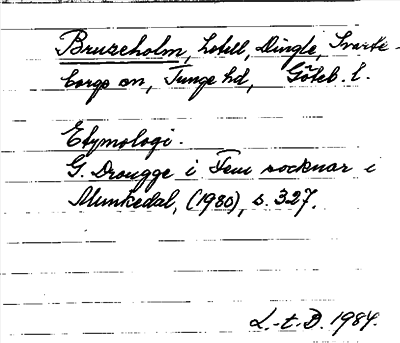 Bruzeholm, hotell, Dingle, Svarte-
borgs sn, Tunge hd, Göteb. l.
Etymologi.
G. Drougge i Fem socknar i
Munkedal, (1980), s. 327.
L.-t. D. 1984.